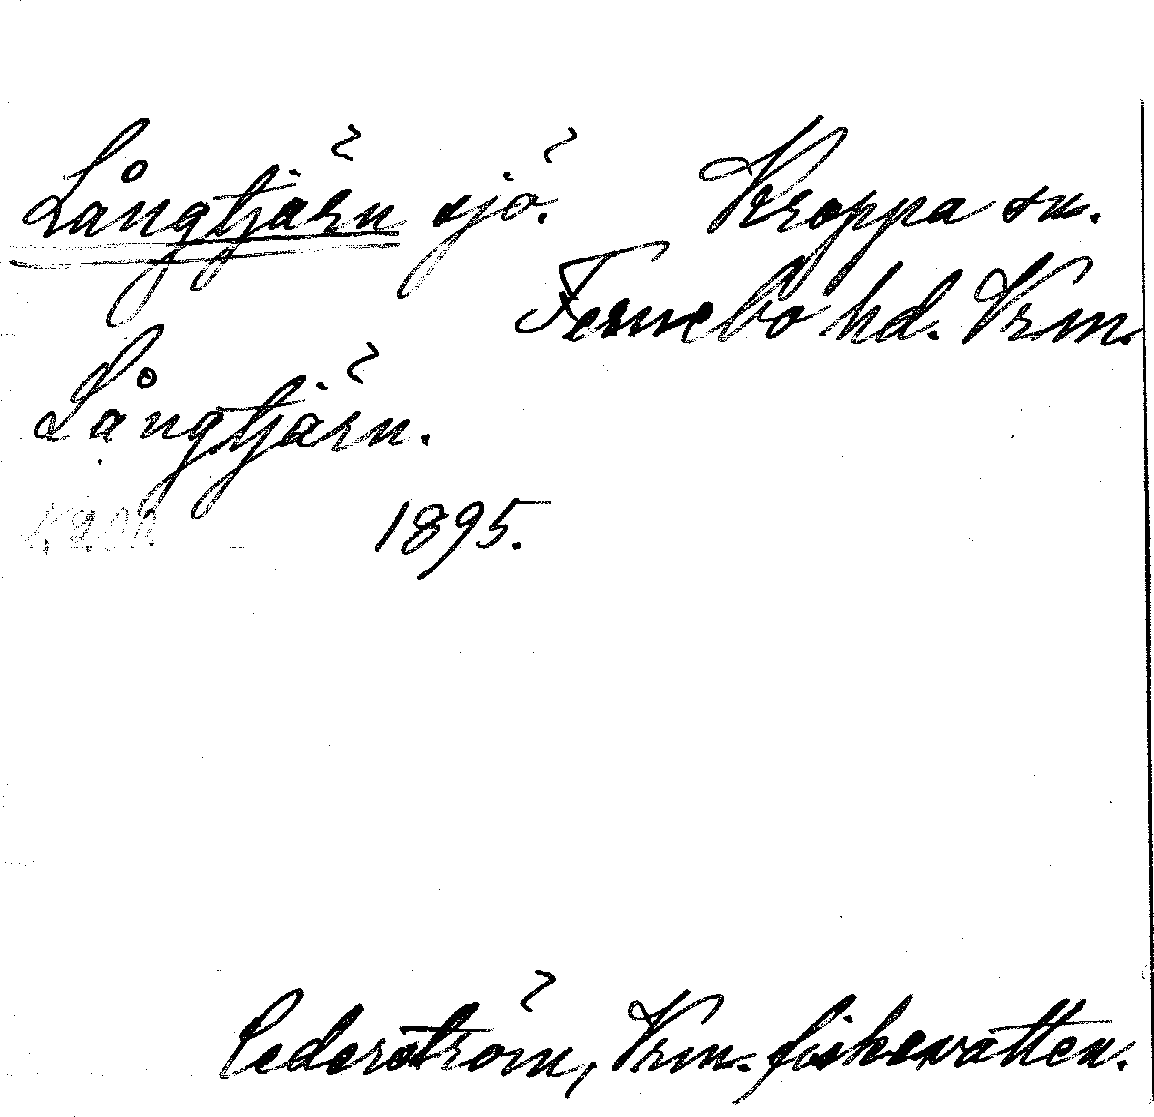 Långtjärn sjö. Kroppa sn.
Fernebo hd. Vrm.
Långtjärn.
1895.
Cederström, Vrm. fiskevatten.